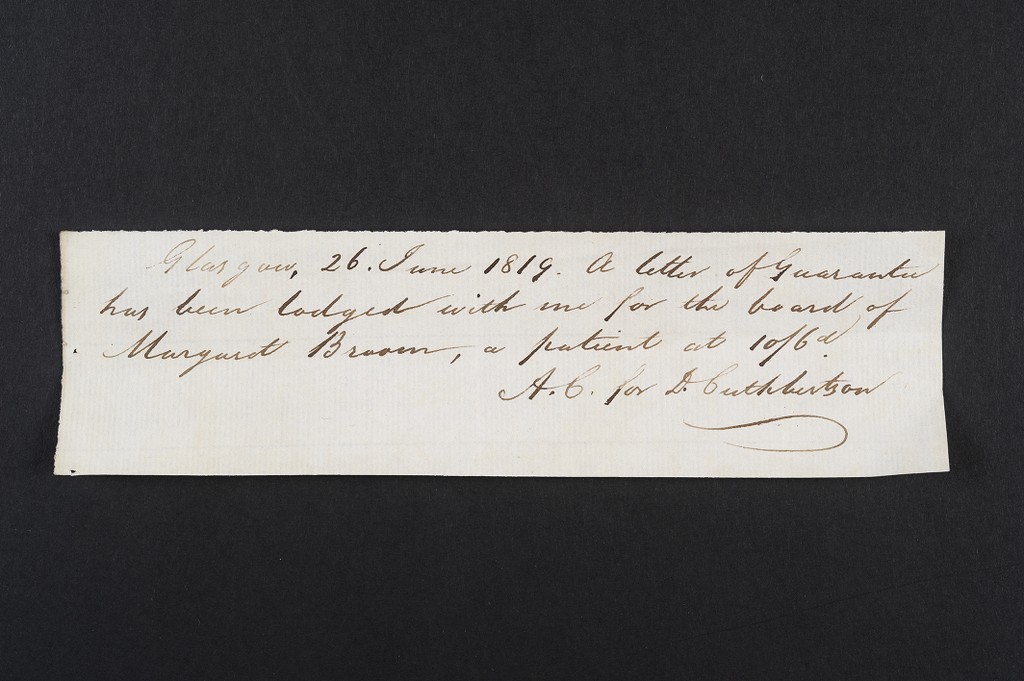 Glasgow, 26. June 1819. A letter of Guarantee
has been lodged with me for the board of
Margaret Broom, a patient at 10/6d.
A.C. for D. Cuthbertson